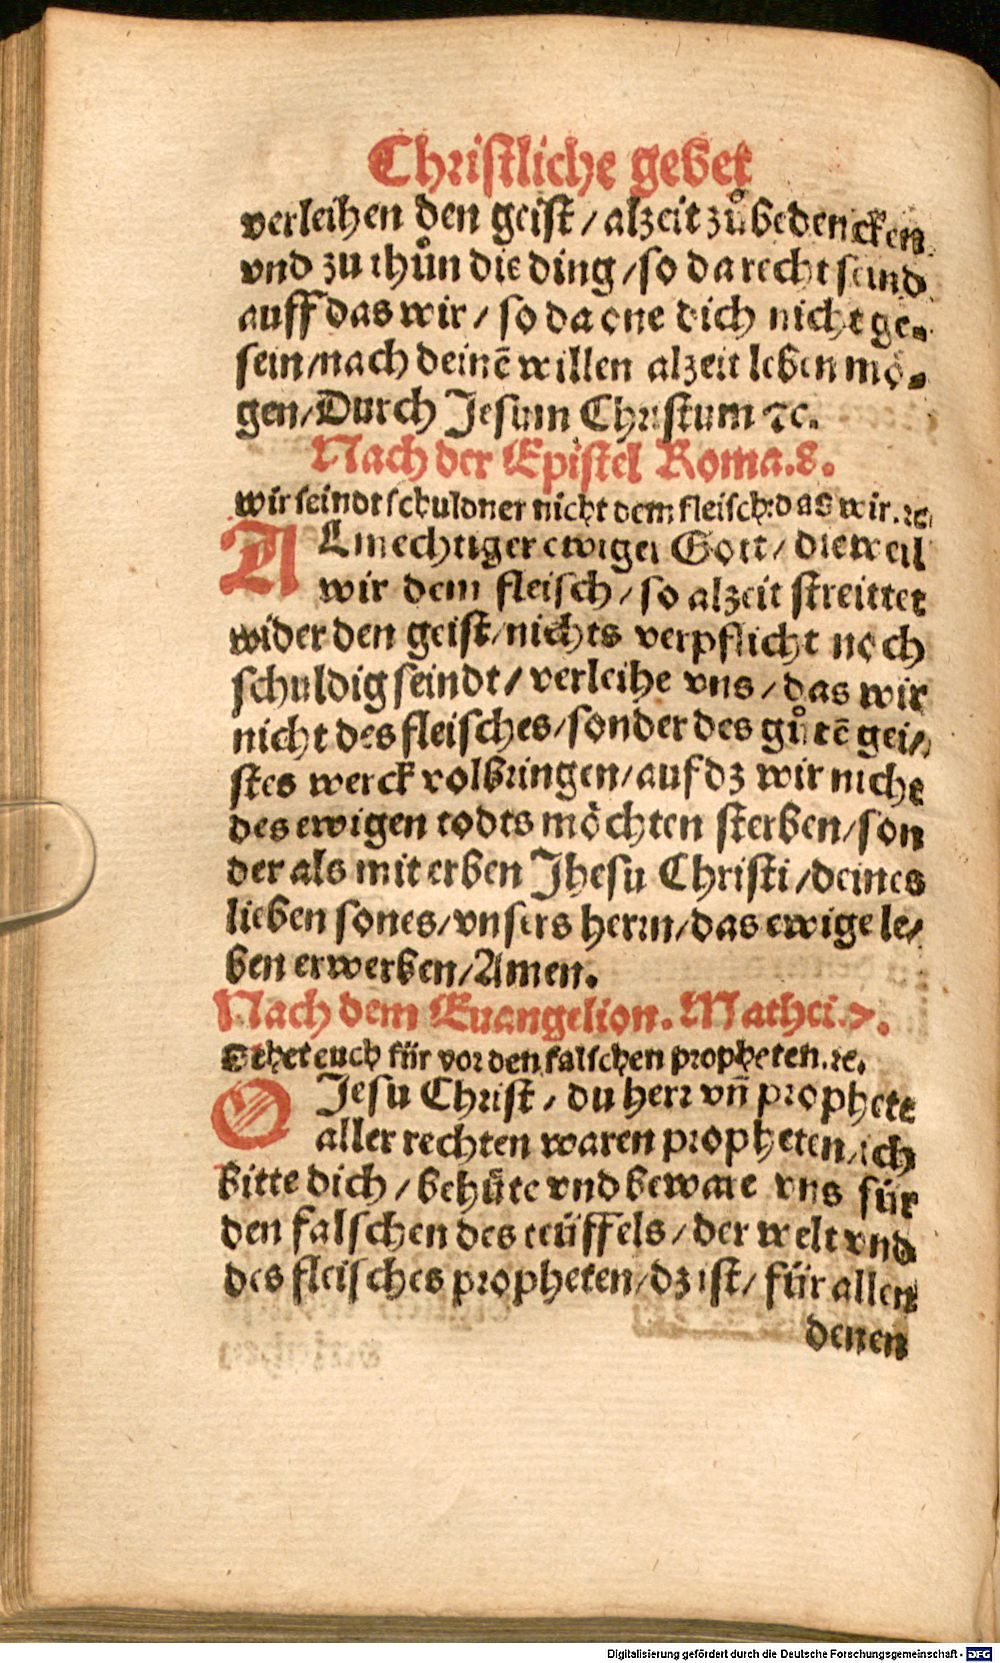 Christliche gebet
verleihen den geist / alzeit zů bedencken
vnd zu thůn die ding / so da recht seind
auff das wir / so da one dich nicht ge⸗
sein / nach deinē willen alzeit leben mö⸗
gen / Durch Jesum Christum ꝛc.
Nach der Epistel Roma. 8.
wir seindt schuldner nicht dem fleisch: das wir. ꝛc
ALmechtiger ewiger Gott / dieweil
wir dem fleisch / so alzeit streittet
wider den geist / nichts verpflicht noch
schuldig seindt / verleihe vns / das wir
nicht des fleisches / sonder des gůtē gei⸗
stes werck volbringen / auf dz wir nicht
des ewigen todts möchten sterben / son
der als miterben Jhesu Christi / deines
lieben sones / vnsers herrn / das ewige le⸗
ben erwerben / Amen.
Nach dem Euangelion. Mathei. 7.
Sehet euch für vor den falschen propheten. ꝛc.
O Jesu Christ / du herr vñ prophete
aller rechten waren propheten / ich
bitte dich / behüte vnd beware vns für
den falschen des teüffels / der welt vnd
des fleisches propheten / dz ist / für allen
denen
Digitalisierung gefördert durch die Deutsche Forschungsgemeinschaft - DFG